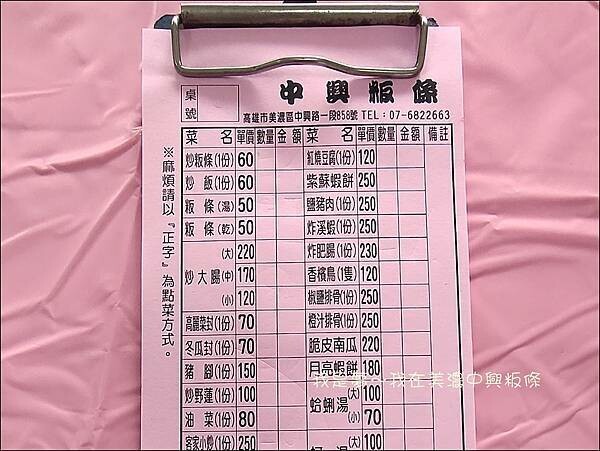 中興粄條
桌號
高雄市美濃區中興路一段858號 TEL：07-6822663
※麻煩請以『正字』為點菜方式。
菜 名 單價 數量 金額 菜 名 單價 數量 金額 備註
炒粄條(1份) 60 紅燒豆腐(1份) 120
炒 飯(1份) 60 紫蘇蝦餅 250
粄 條(湯) 50 鹽豬肉(1份) 250
粄 條(乾) 50 炸溪蝦(1份) 250
(大) 220 炸肥腸(1份) 230
炒大腸(中) 170 香檳鳥(1隻) 120
(小) 120 椒鹽排骨(1份) 250
高麗菜封(1份) 70 橙汁排骨(1份) 250
冬瓜封(1份) 70 脆皮南瓜 220
豬 腳(1份) 150 月亮蝦餅 180
炒野蓮(1份) 100 蛤蜊湯 (大) 100
油 菜(1份) 80 (小) 70
客家小炒(1份) 250 (大) 100
我在美濃中興粄條